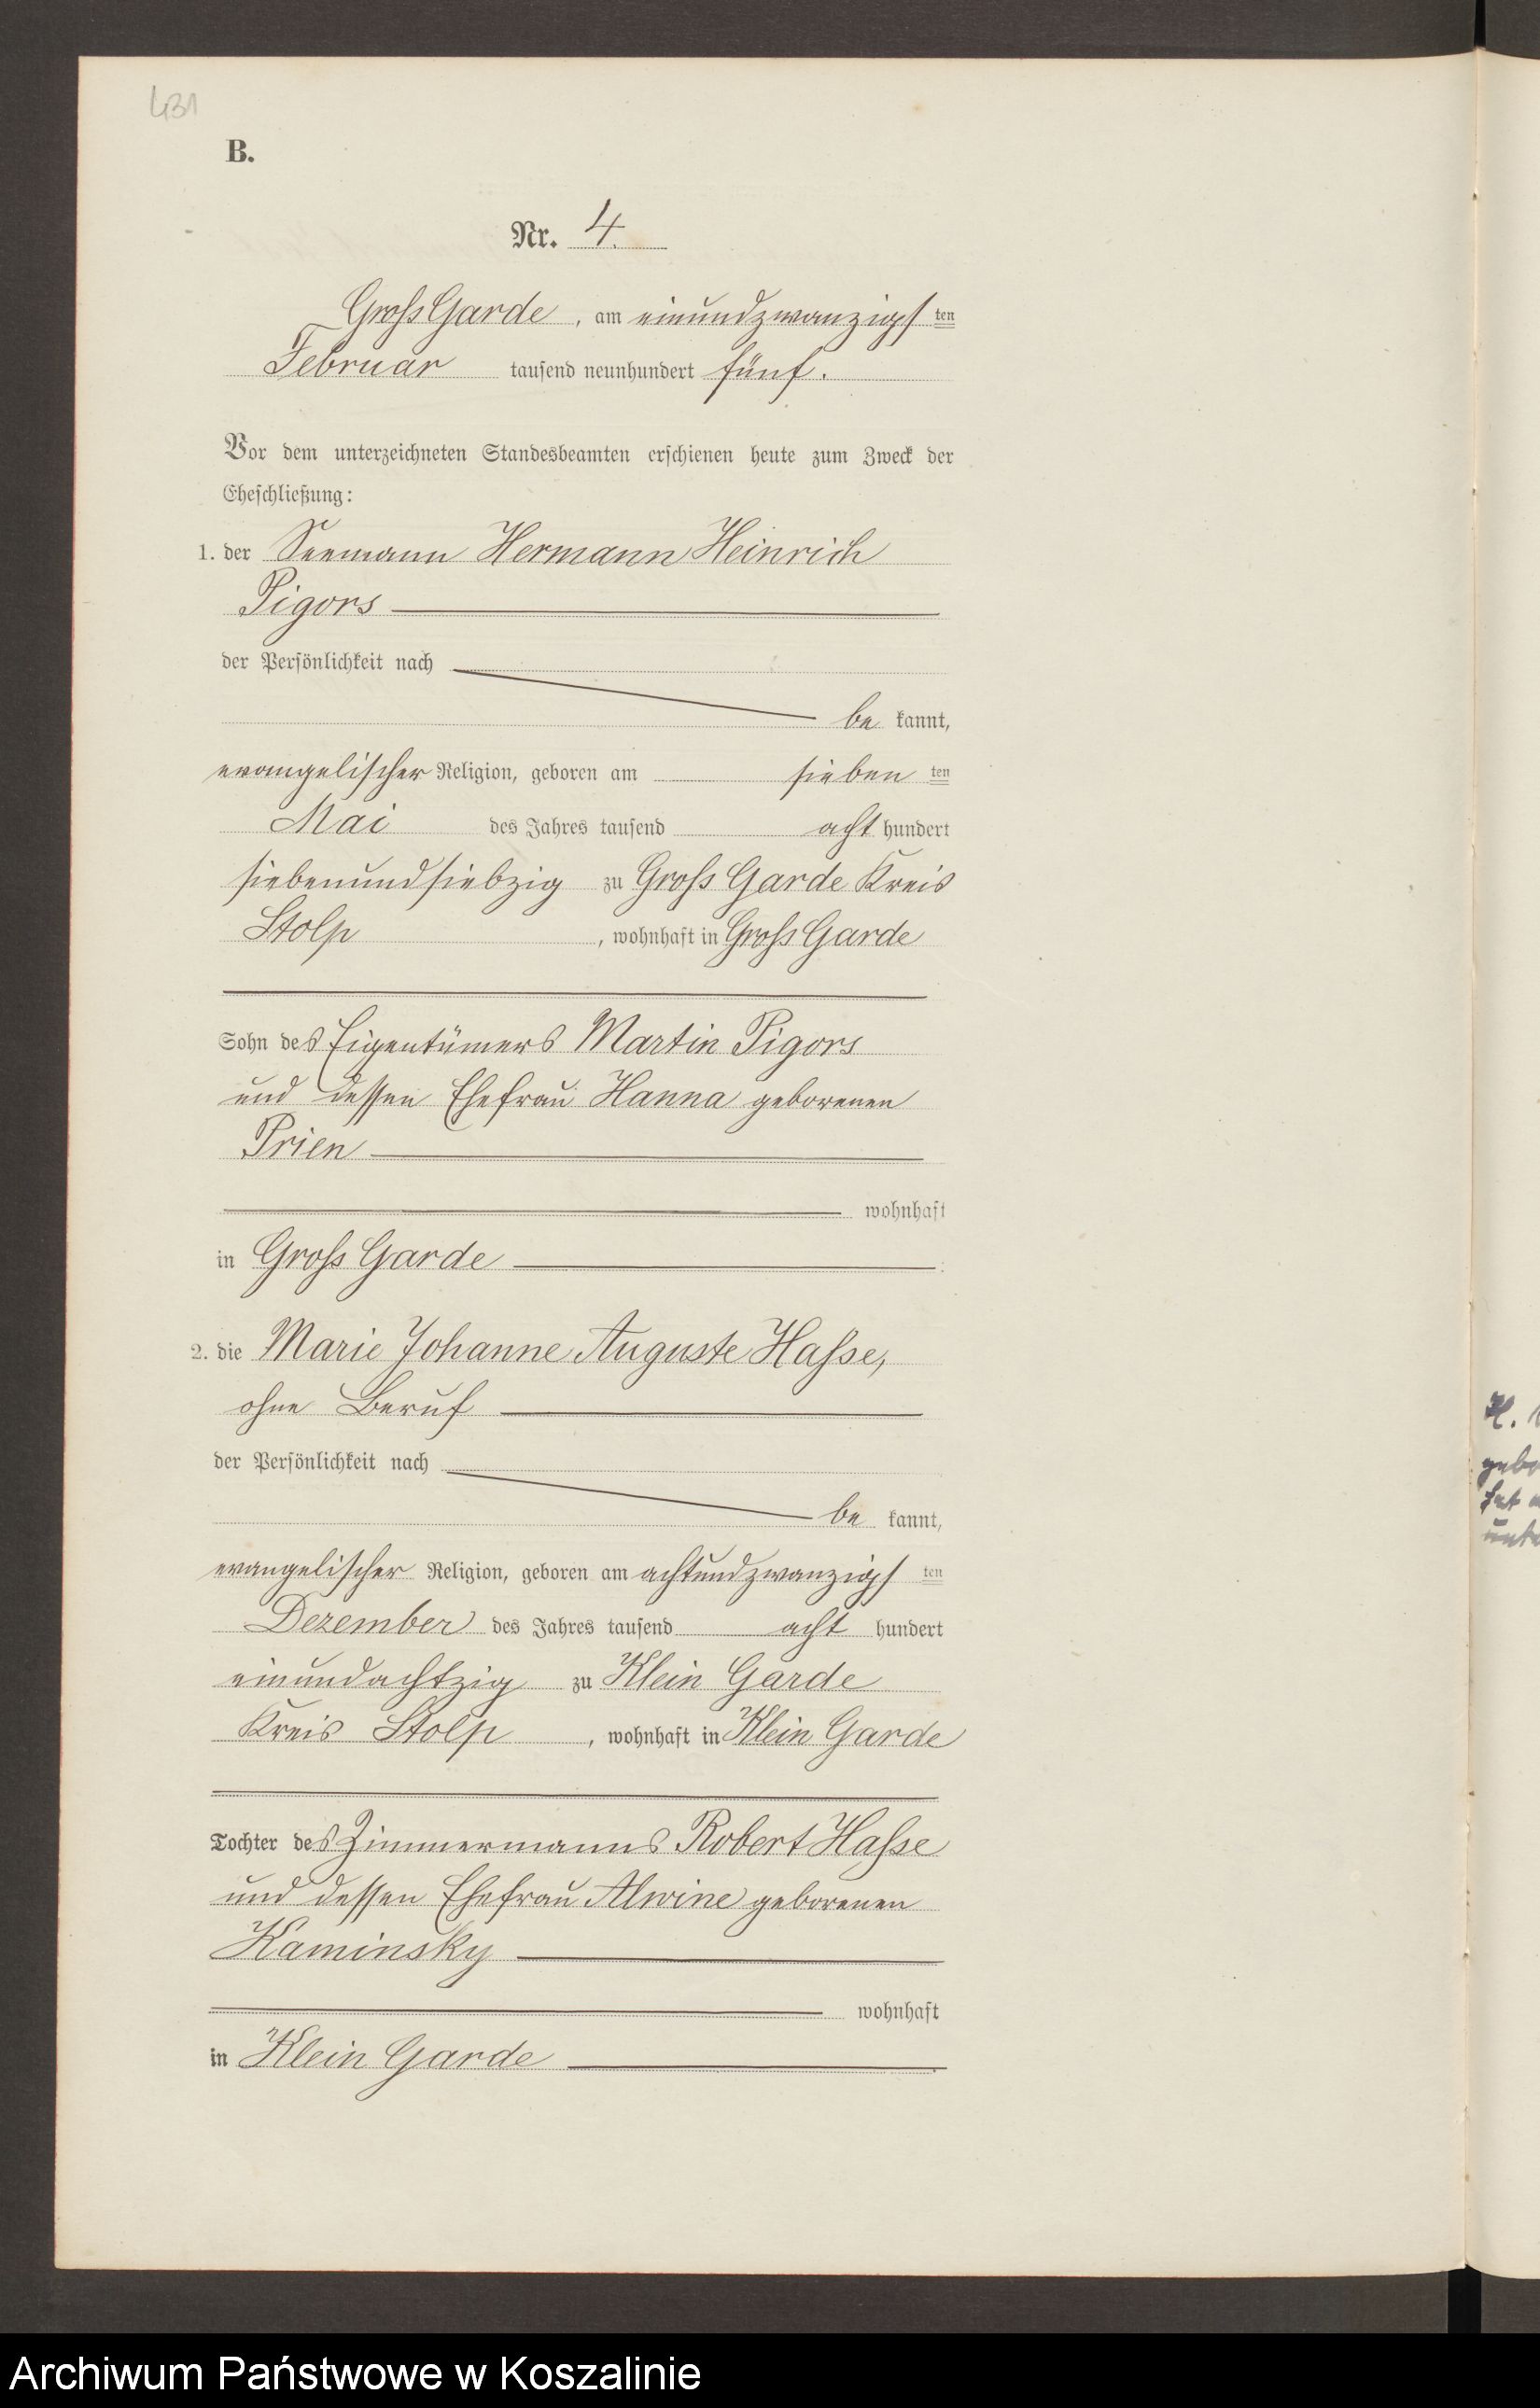 431
B.
Nr. 4.
Groß Garde, am einundzwanzigsten
Februar tausend neunhundert fünf.
Vor dem unterzeichneten Standesbeamten erschienen heute zum Zweck der
Eheschließung:
1. der Seemann Hermann Heinrich
Pigors
der Persönlichkeit nach
be kannt,
evangelischer Religion, geboren am sieben ten
Mai des Jahres tausend acht hundert
siebenundsiebzig zu Groß Garde Kreis
Stolp, wohnhaft in Groß Garde
Sohn des Eigentümers Martin Pigors
und dessen Ehefrau Hanna geborenen
Prien
wohnhaft
in Groß Garde
2. die Marie Johanne Auguste Hasse,
ohne Beruf
der Persönlichkeit nach
be kannt,
evangelischer Religion, geboren am achtundzwanzigsten
Dezember des Jahres tausend acht hundert
einundachtzig zu Klein Garde
Kreis Stolp, wohnhaft in Klein Garde
Tochter des Zimmermanns Robert Hasse
und dessen Ehefrau Alwine geborenen
Kaminsky
wohnhaft
in Klein Garde
Archiwum Państwowe w Koszalinie